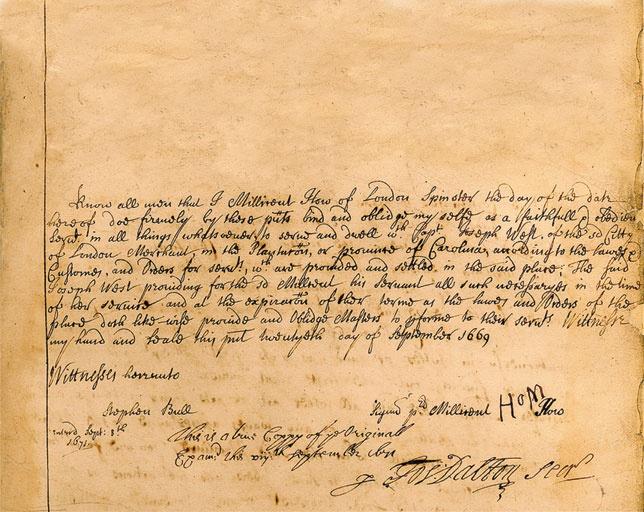 Know all men that I Millicent How of London Spinster the day of the date
hereof doe firmely by these pnts bind and oblidge my selfe as a faithfull & obedient
Servt. in all things whatsoever, to serve and dwell wth Capt. Joseph West, of the sd Citty
of London Merchant, in the Plantation, or province of Carolina, according to the lawes,
Customes, and Orders for servts, wch are provided and setled in the said place. The said
Joseph West providing for the sd Millicent his servant all such necessaryes in the time
of her service and at the expiration of her terme as the lawes and Orders of the
place doth like wise provide and oblidge Masters to performe to their servts. Wittnesse
my hand and seale this pnt twentyeth day of September 1669
Wittnesses hereunto
Stephen Bull
Signum pd Millicent HOM How
entrd Sept: 8th
1671
This is a true Coppy of ye Originall
Examd this September 1671
p Jos Dalton Secry